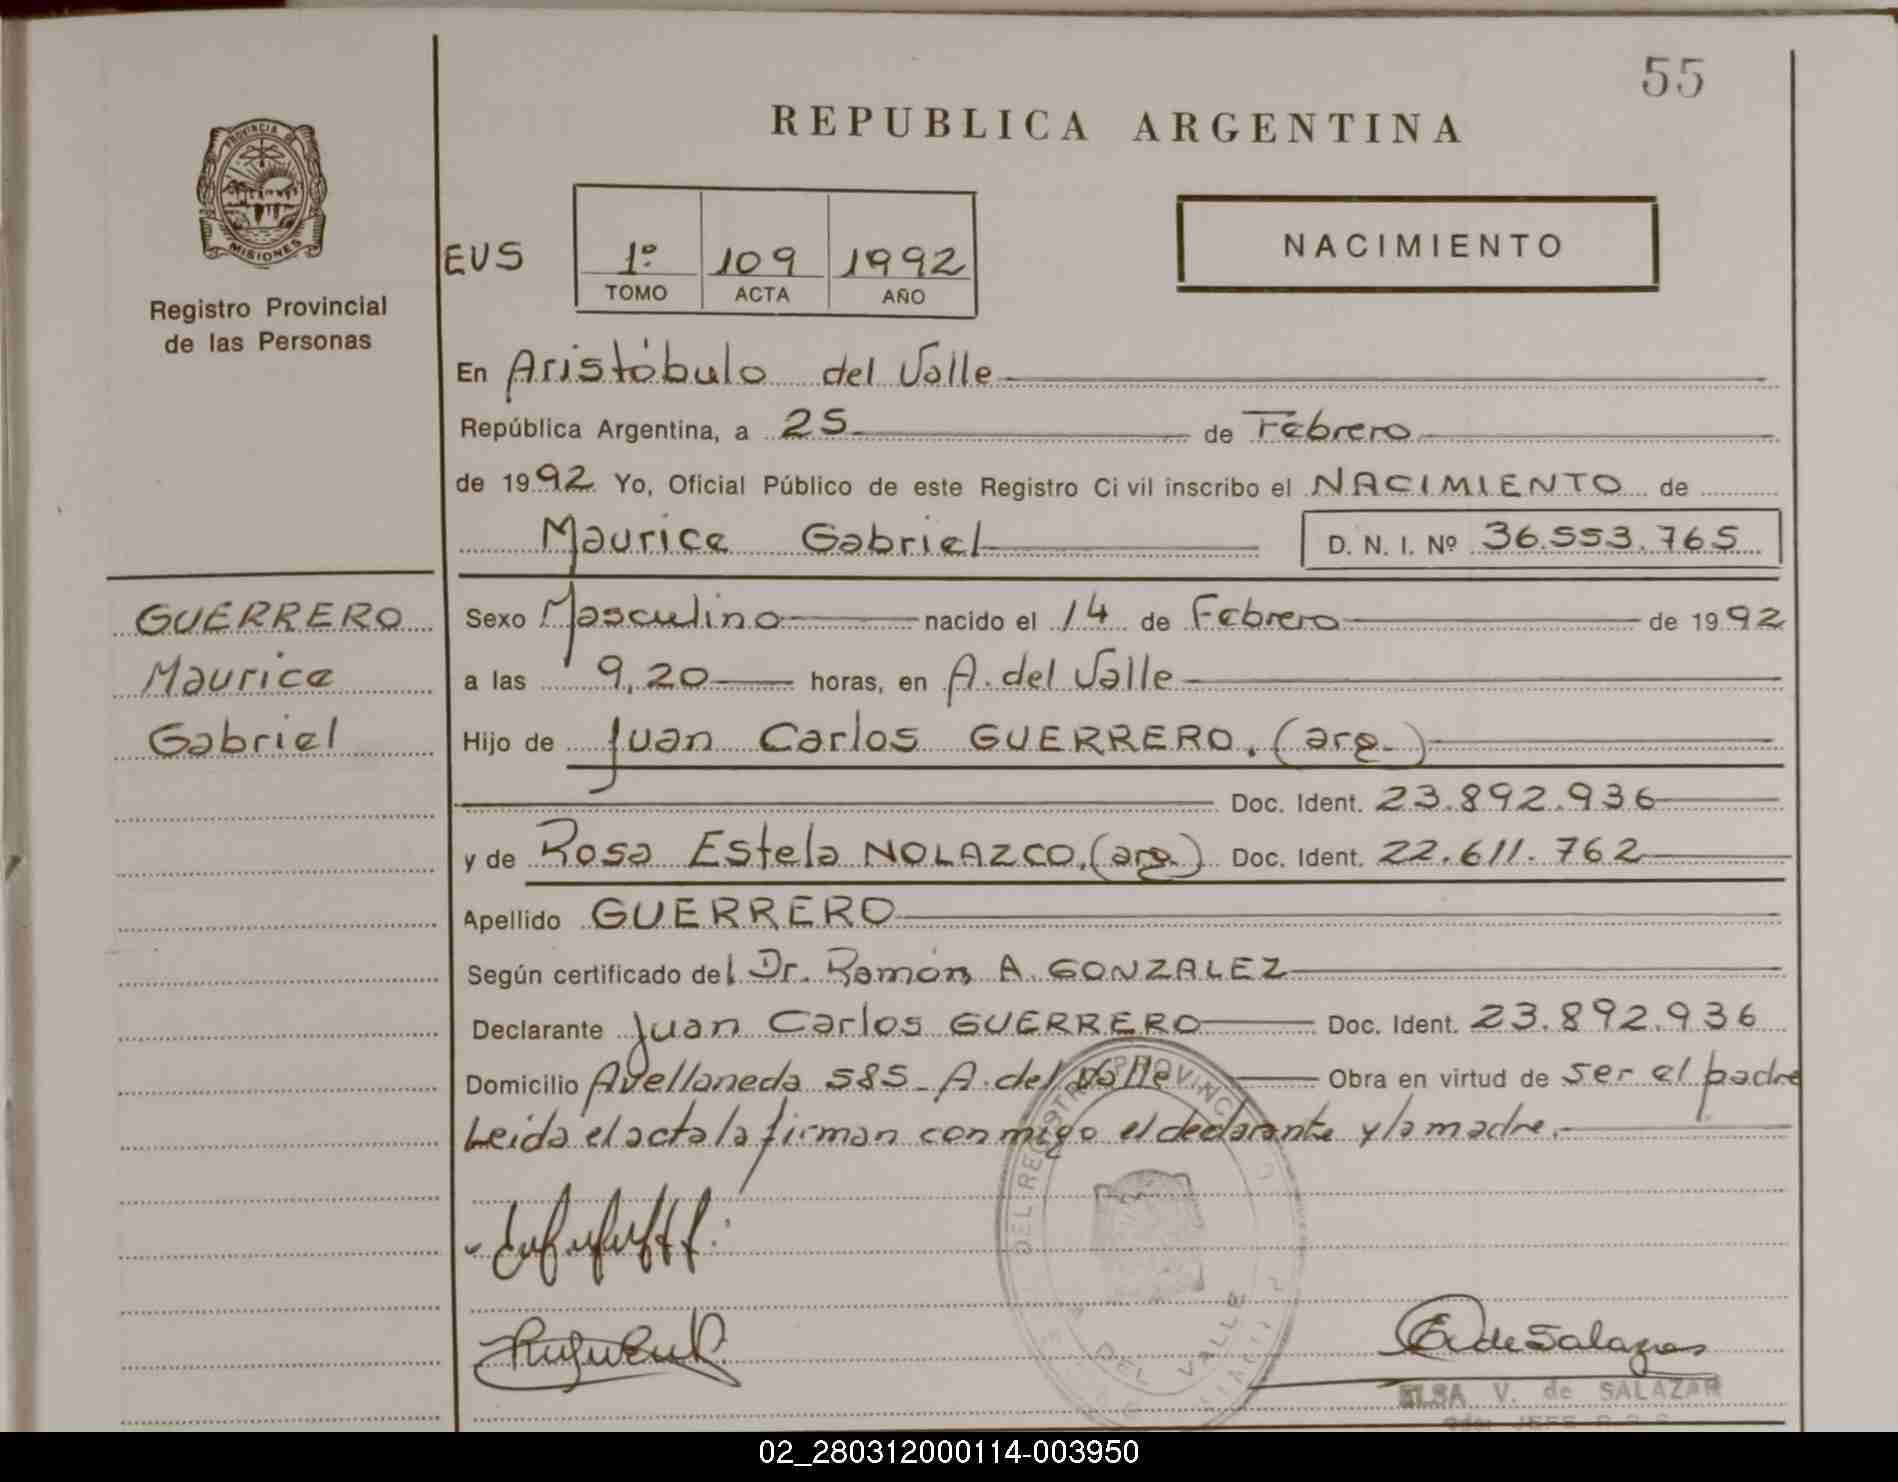 55
REPUBLICA ARGENTINA
PROVINCIA DE
MISIONES
Registro Provincial
de las Personas
EUS
1º 109 1992
TOMO ACTA AÑO
NACIMIENTO
En Aristóbulo del Valle
República Argentina, a 25 de Febrero
de 1992 Yo, Oficial Público de este Registro Civil inscribo el NACIMIENTO de
Maurice Gabriel D. N. I. Nº 36.553.765
GUERRERO
Maurice
Gabriel
Sexo Masculino nacido el 14 de Febrero de 1992
a las 9,20 horas, en A. del Valle
Hijo de Juan Carlos GUERRERO. (arg.)
Doc. Ident. 23.892.936
y de Rosa Estela NOLAZCO. (arg.) Doc. Ident. 22.611.762
Apellido GUERRERO
Según certificado del Dr. Ramón A. GONZALEZ
Declarante Juan Carlos GUERRERO Doc. Ident. 23.892.936
Domicilio Avellaneda 585_ A. del Valle Obra en virtud de ser el padre
Leida el acta la firman conmigo el declarante y la madre.
DEL REGISTRO PROVINCIAL
DEL VALLE
E. de Salazar
ELSA V. de SALAZAR
02_280312000114-003950